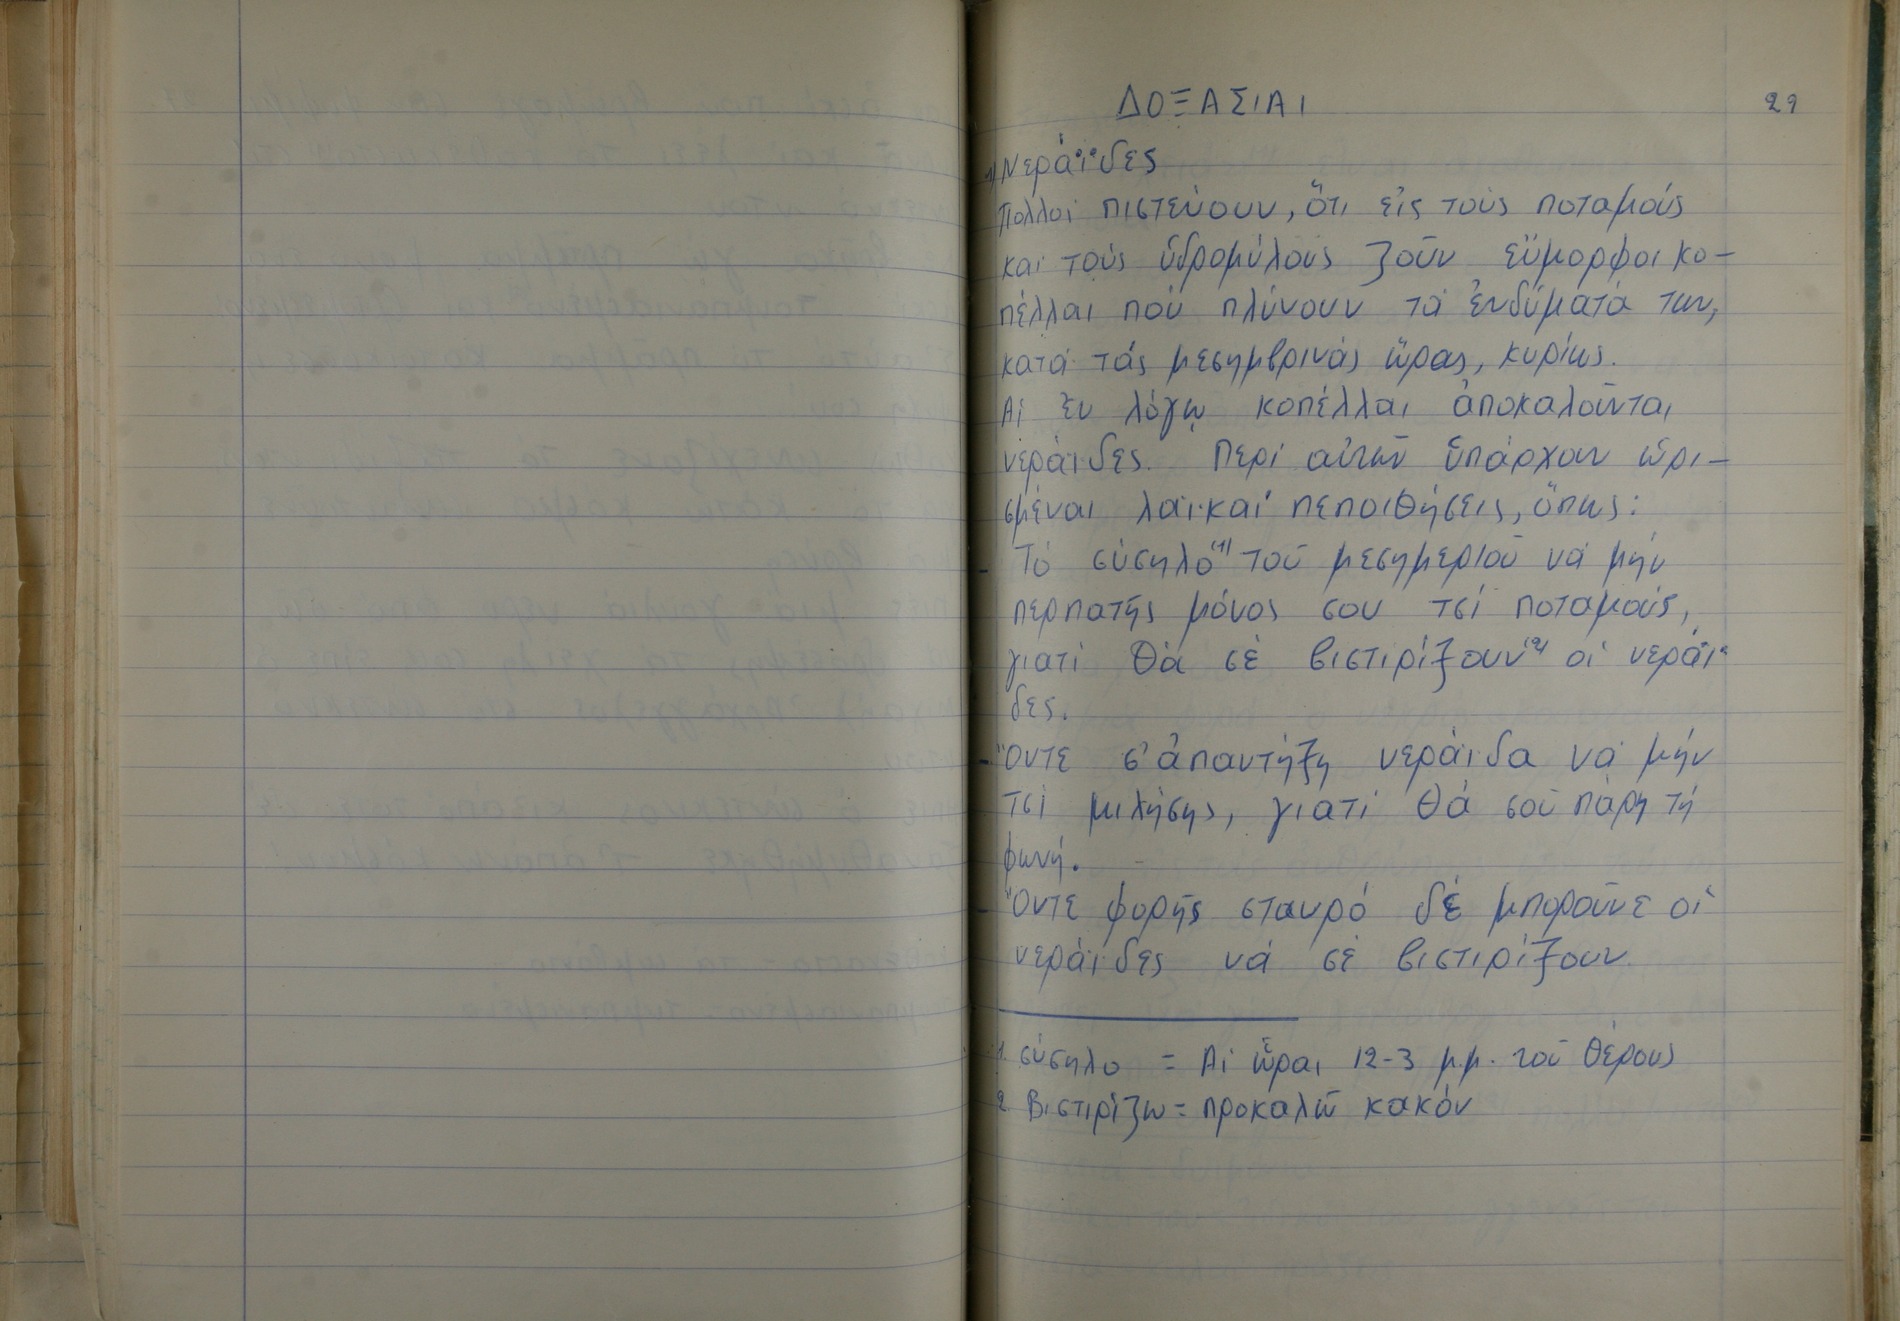 ΔΟΞΑΣΙΑΙ
29
1) Νεράϊδες
Πολλοί πιστεύουν, ὅτι εἰς τούς ποταμούς
και τούς ὑδρομύλους ζοῦν εὔμορφοι κο-
πέλλαι πού πλύνουν τά ἐνδύματά των,
κατά τάς μεσημβρινάς ὥρας, κυρίως.
Αἱ ἐν λόγῳ κοπέλλαι ἀποκαλοῦνται
νεράιδες. Περί αὐτῶν ὑπάρχουν ὡρι-
σμέναι λαϊκαί πεποιθήσεις, ὅπως:
- Τό σύσηλο(1) τοῦ μεσημεριοῦ νά μήν
περπατῇς μόνος σου τσί ποταμούς,
γιατί θά σέ βιστιρίξουν(2) οἱ νεράϊ-
δες.
- Ὅντε σ' ἀπαντήξῃ νεράιδα νά μήν
τσῆ μιλήσῃς, γιατί θά σοῦ πάρῃ τή
φωνή.
- Ὅντε φορῇς σταυρό δέ μποροῦνε οἱ
νεράιδες νά σέ βιστιρίξουν
1. σύσηλο = Αἱ ὧραι 12-3 μ.μ. τοῦ θέρους
2. Βιστιρίζω = προκαλῶ κακόν